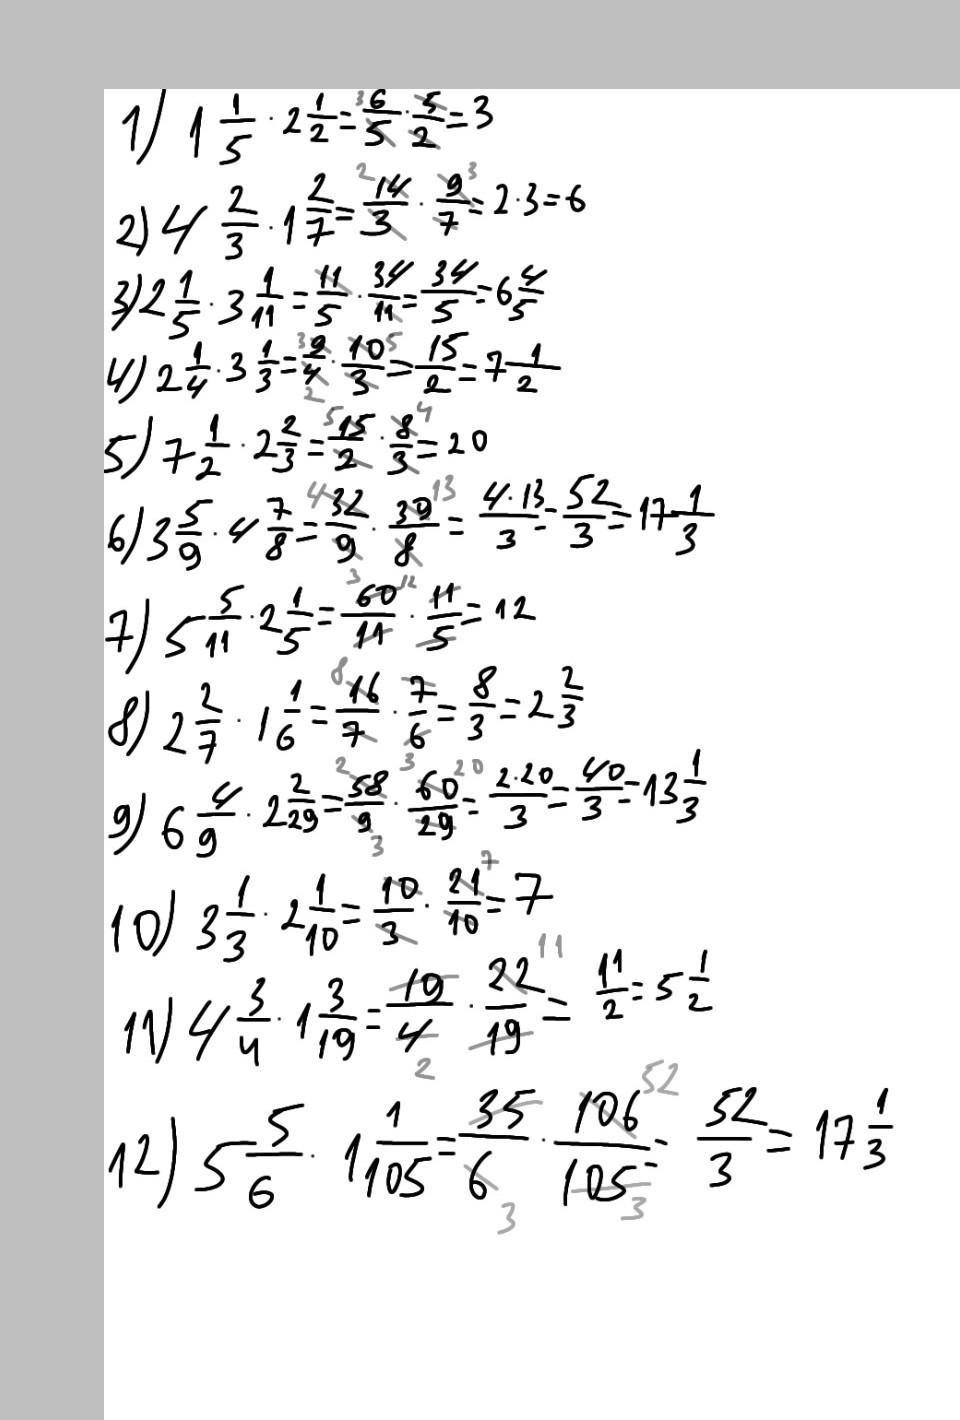 1) 1 1/5 · 2 1/2 = 6/5 · 5/2 = 3
2) 4 2/3 · 1 2/7 = 14/3 · 9/7 = 2·3 = 6
3) 2 1/5 · 3 1/11 = 11/5 · 34/11 = 34/5 = 6 4/5
4) 2 1/4 · 3 1/3 = 9/4 · 10/3 = 15/2 = 7 1/2
5) 7 1/2 · 2 2/3 = 15/2 · 8/3 = 20
6) 3 5/9 · 4 7/8 = 32/9 · 39/8 = 4·13/3 = 52/3 = 17 1/3
7) 5 5/11 · 2 1/5 = 60/11 · 11/5 = 12
8) 2 2/7 · 1 1/6 = 16/7 · 7/6 = 8/3 = 2 2/3
9) 6 4/9 · 2 2/29 = 58/9 · 60/29 = 2·20/3 = 40/3 = 13 1/3
10) 3 1/3 · 2 1/10 = 10/3 · 21/10 = 7
11) 4 3/4 · 1 3/19 = 19/4 · 22/19 = 11/2 = 5 1/2
12) 5 5/6 · 1 1/105 = 35/6 · 106/105 = 52/3 = 17 1/3